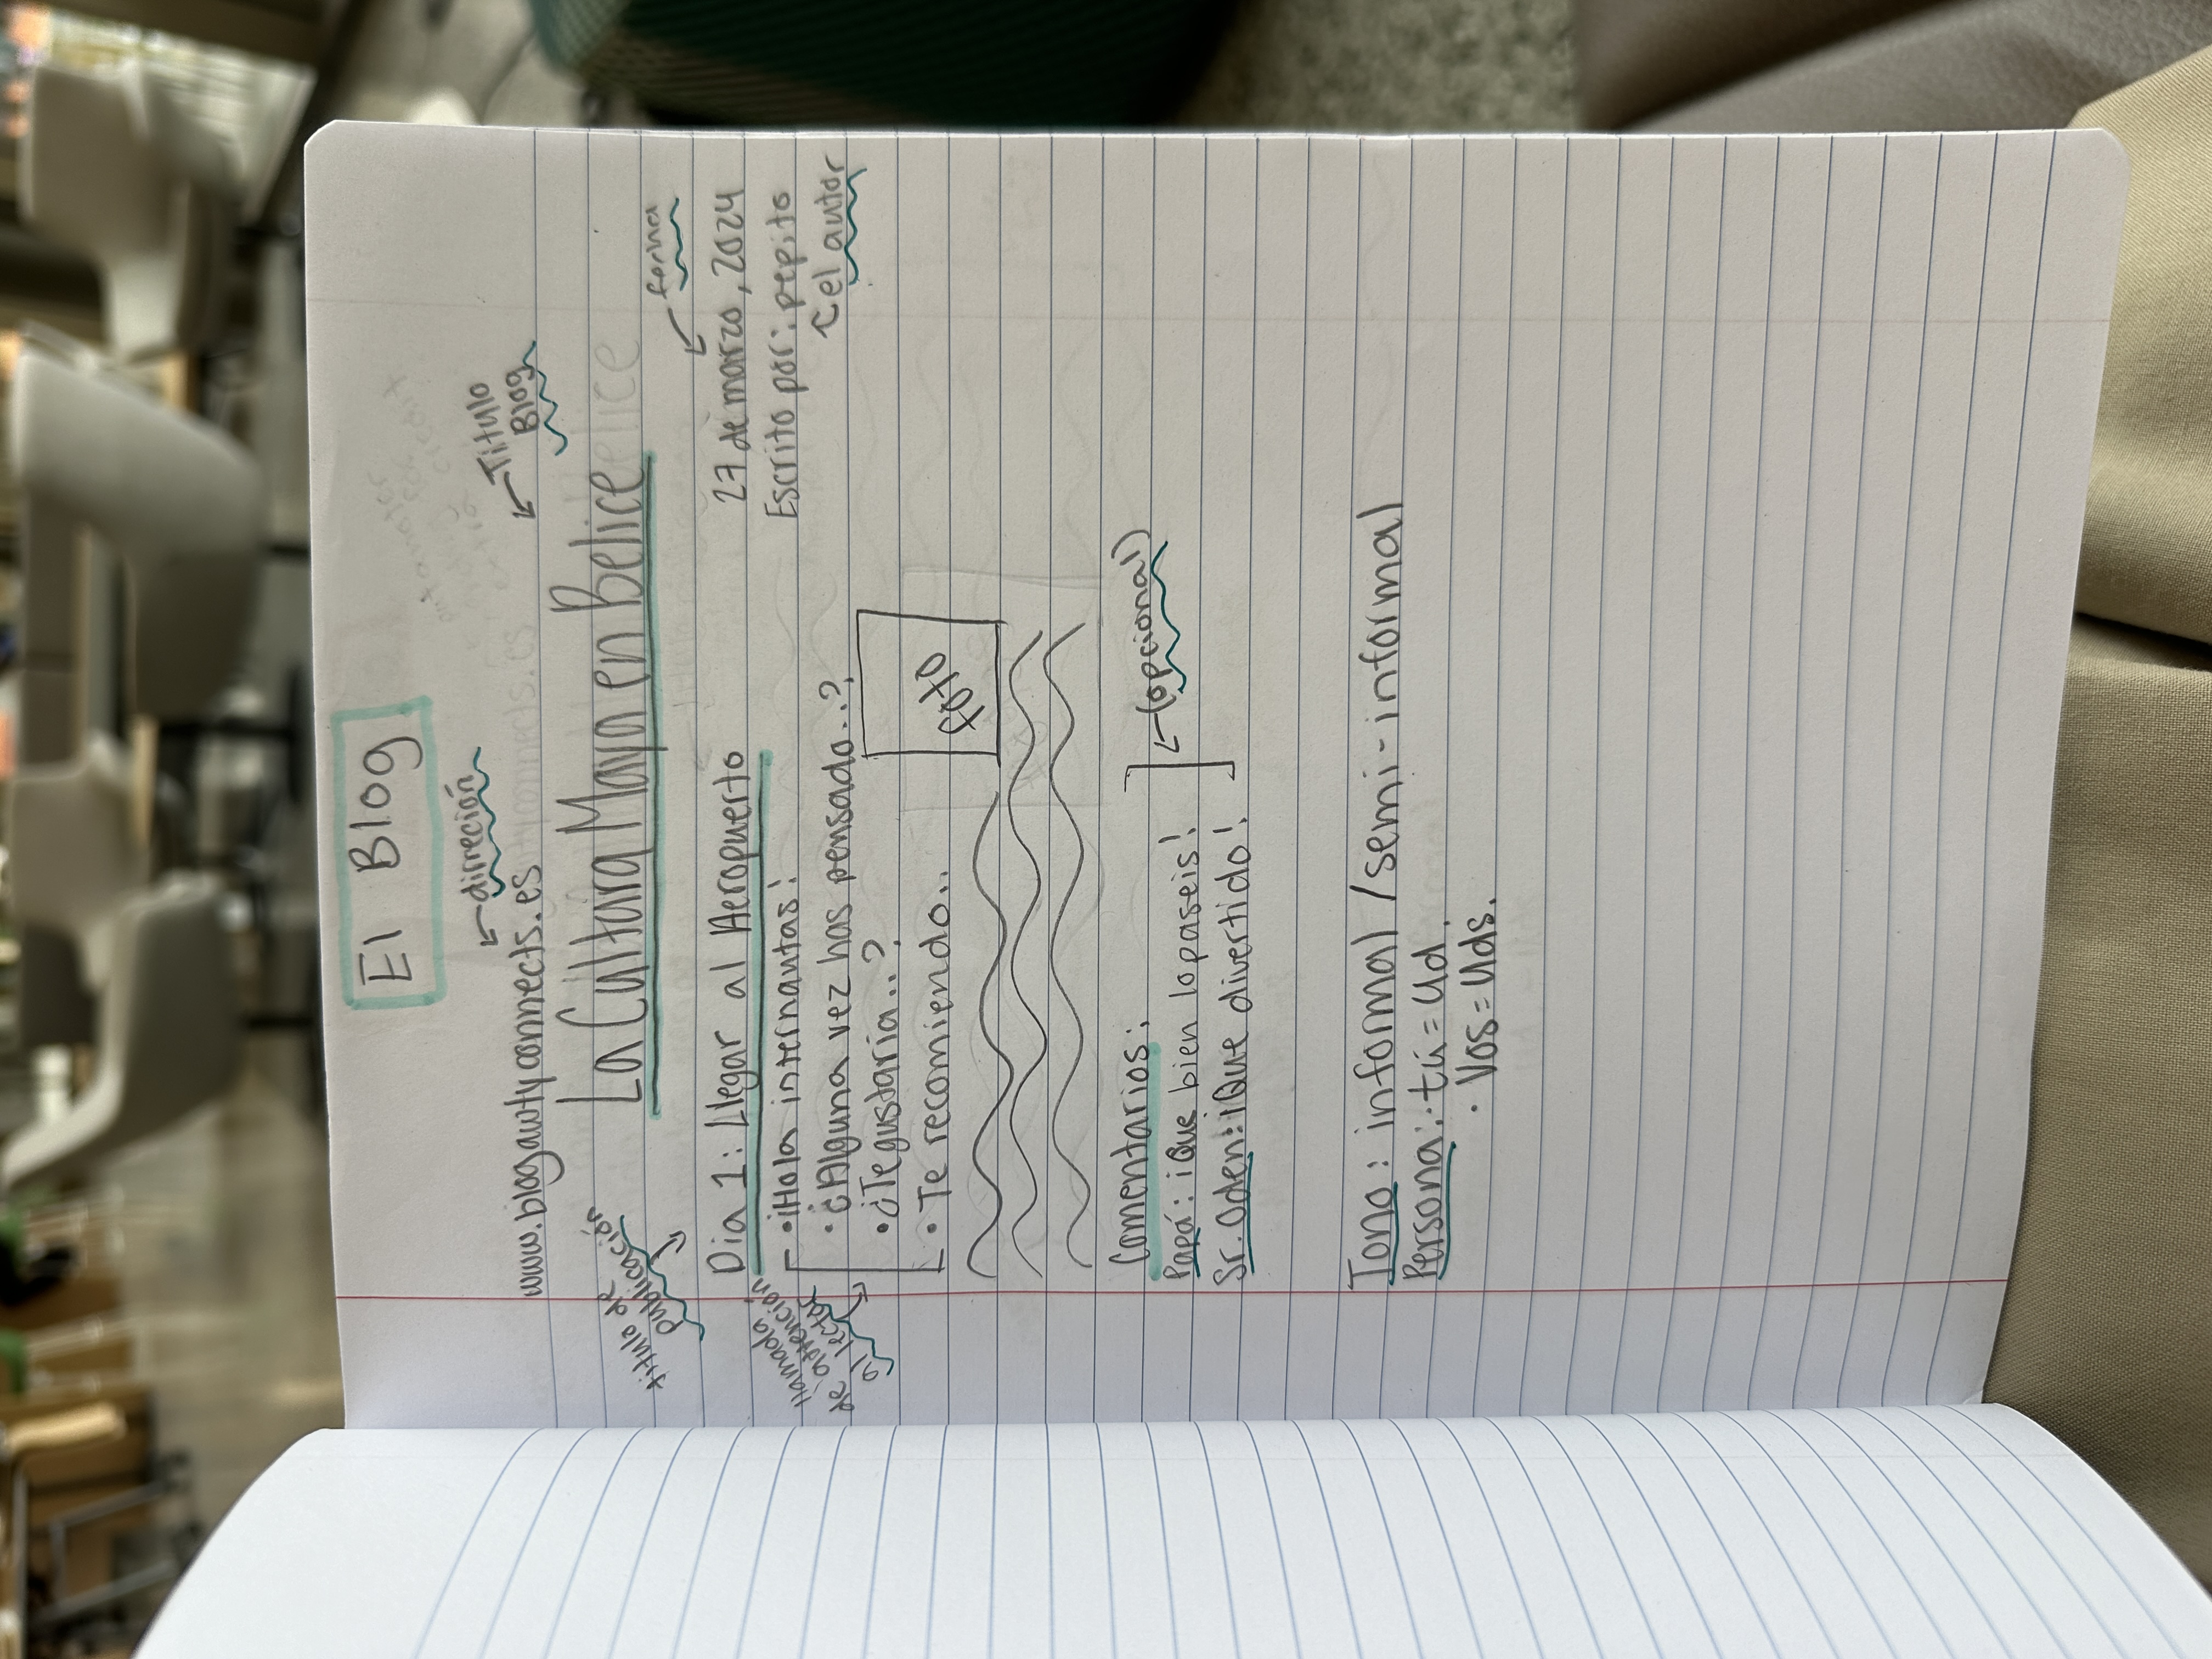 El Blog
dirreción
www.blogawtyconnects.es
Titulo
Blog
La Cultura Maya en Belice
titulo de
publicación
fecha
Dia 1: Llegar al Aeropuerto
27 de marzo, 2024
llamada
de attención
al lector
•¡Hola internautas!
Escrito por: pepito
•¿Alguna vez has pensado..?
el autor
•¿Te gustaria..?
•Te recomiendo..
foto
Comentarios:
(opcional)
Papá: ¡Que bien lo paseis!
Sr. Oden: ¡Que divertido!
Tono: informal /semi-informal
Persona: •tú = Ud.
• Vos = Uds.